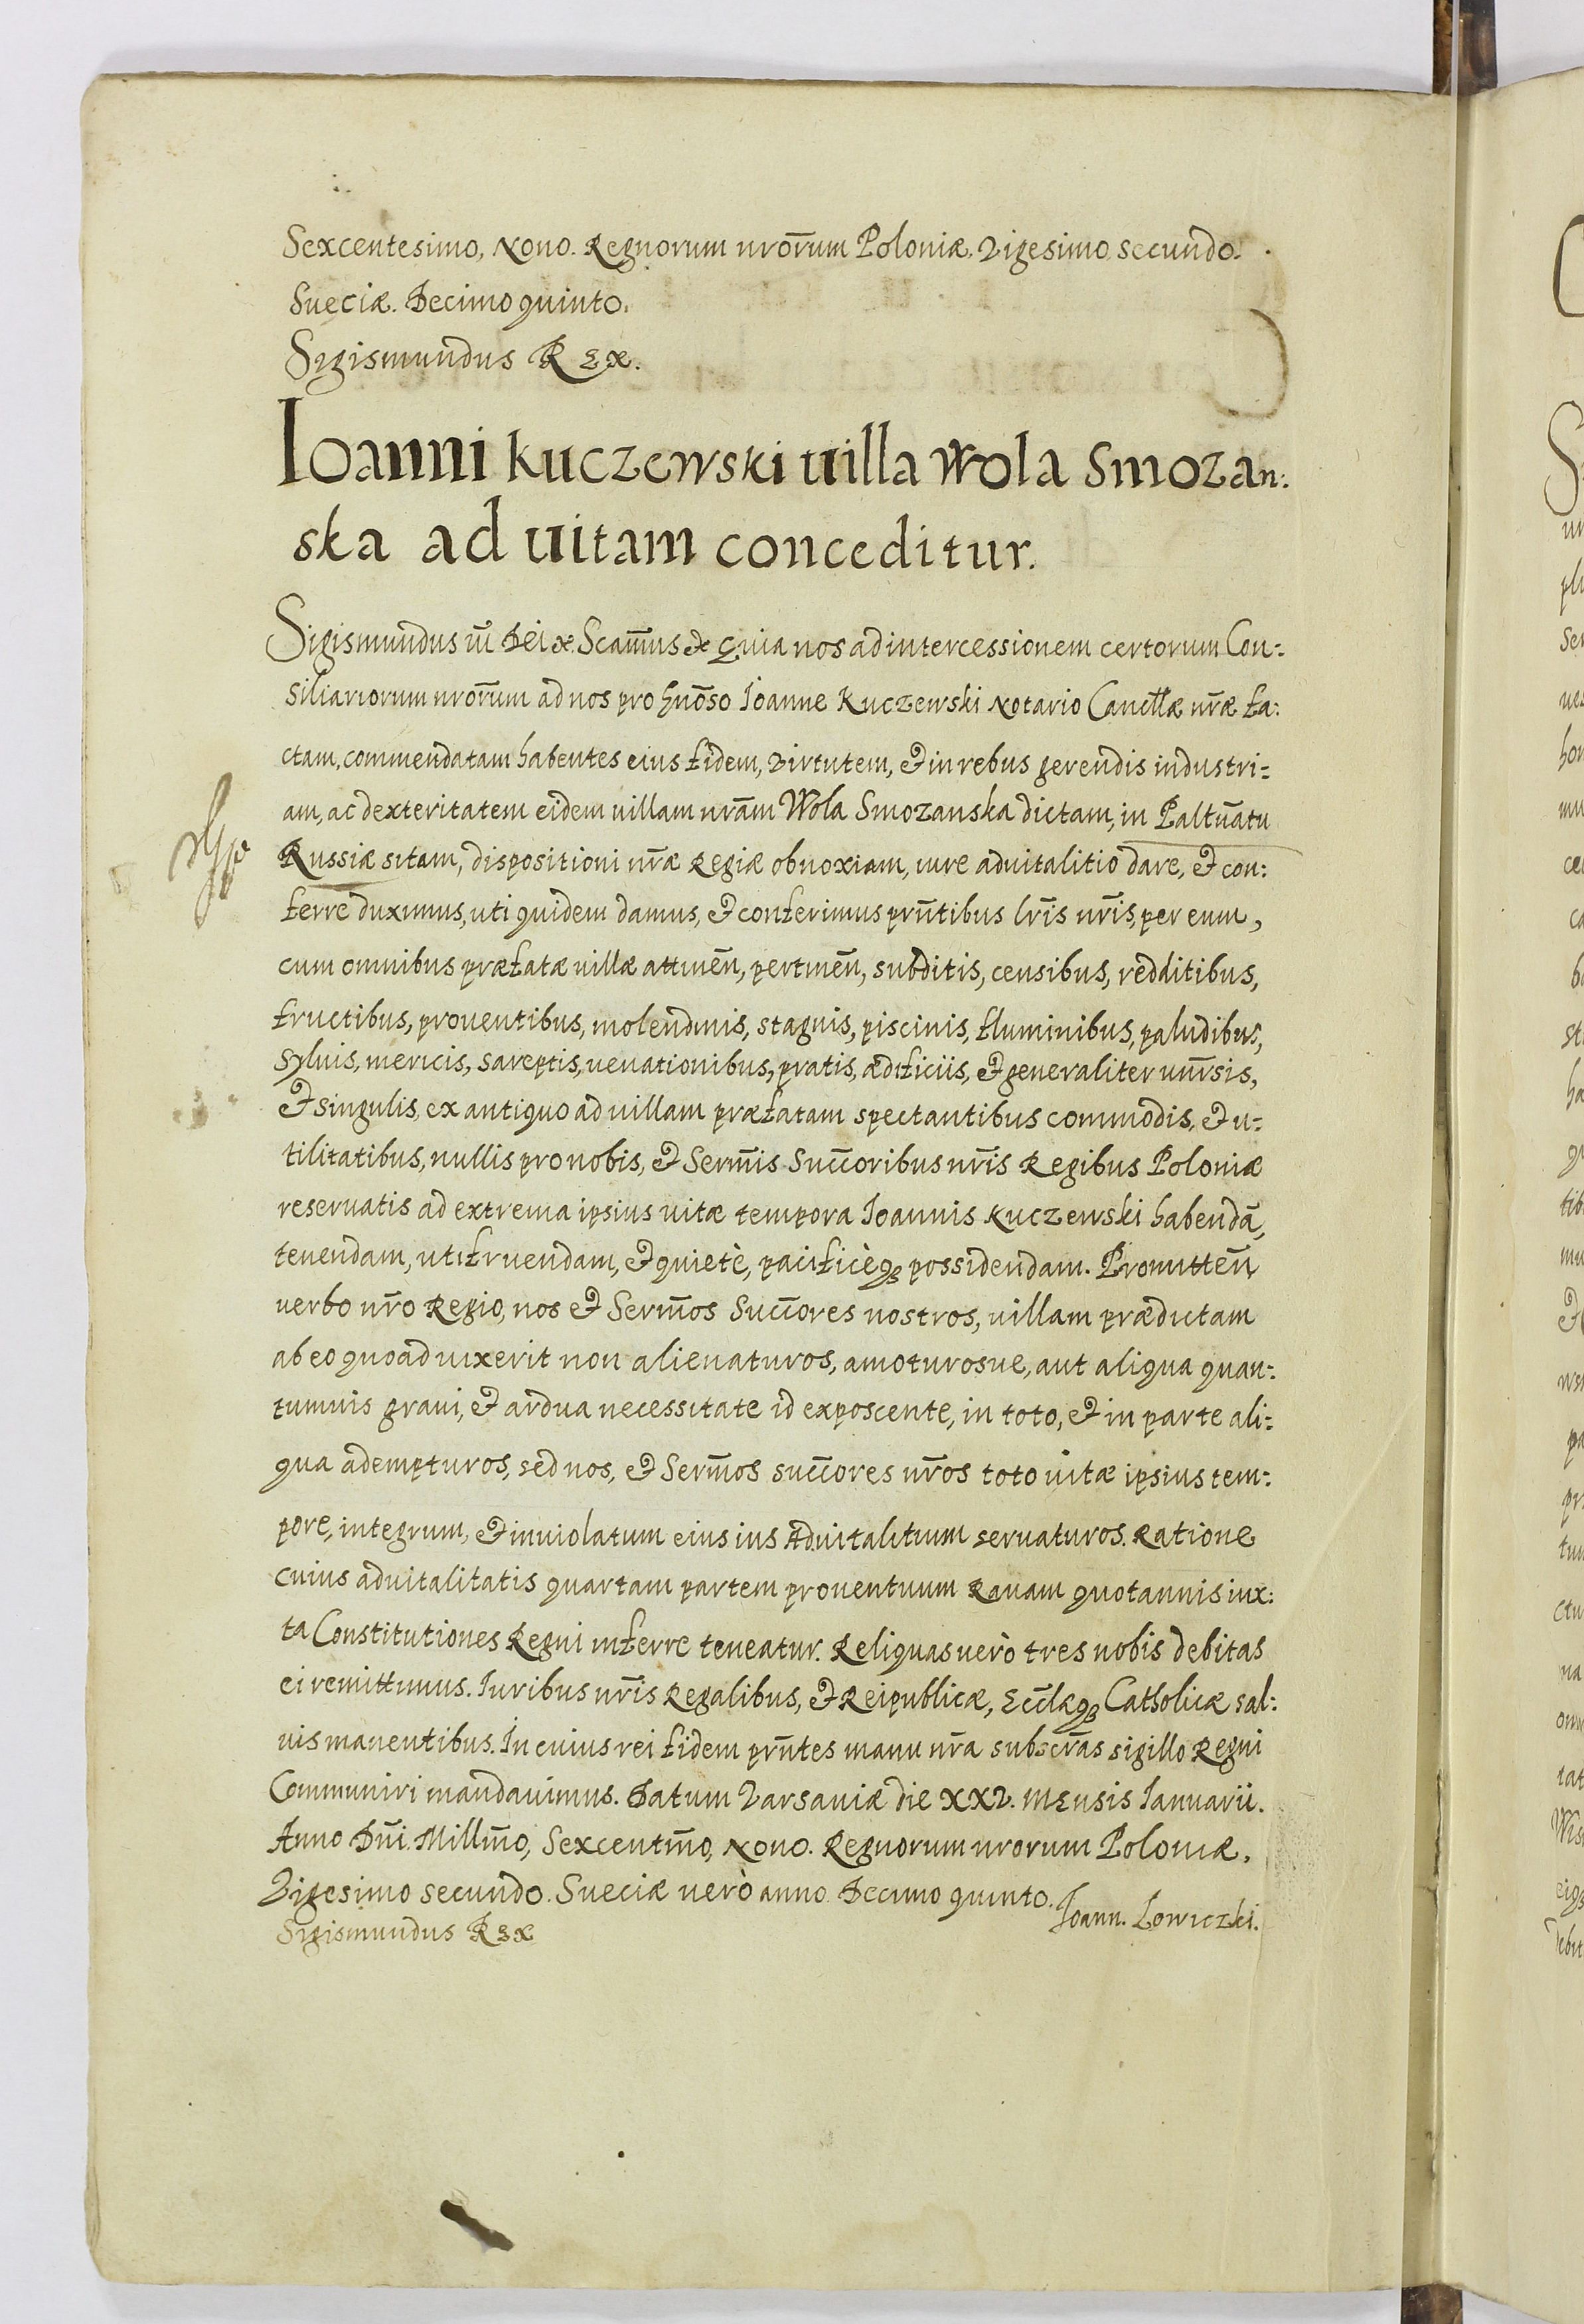 Sexcentesimo, Nono. Regnorum nrōrum Poloniæ. Vigesimo secundo.
Sueciæ. Decimo quinto.
Sigismundus REX.
Ioanni Kuczewski uilla Wola Smozan:
ska ad uitam conceditur.
Sigismundus iii Dei &. Scāmus & Quia nos ad intercessionem certorum Con:
siliariorum nrōrum ad nos pro Gnōso Ioanne Kuczewski Notario Cancllæ nrǣ fa:
ctam, commendatam habentes eius fidem, Virtutem, & in rebus gerendis industri:
am, ac dexteritatem eidem uillam nrām Wola Smozanska dictam, in Paltūatu
Russiæ sitam, dispositioni nrǣ Regiæ obnoxiam, iure aduitalitio dare, & con:
ferre duximus, uti quidem damus, & conferimus prn̄tibus lrīs nrīs, per eum,
cum omnibus præfatæ uillæ attinēn, pertinēn, subditis, censibus, redditibus,
fructibus, prouentibus, molendinis, stagnis, piscinis, fluminibus, paludibus,
syluis, mericis, sareptis, uenationibus, pratis, ædificiis, & generaliter unīrsis,
& singulis, ex antiquo ad uillam præfatam spectantibus commodis, & u:
tilitatibus, nullis pro nobis, & Serm̄is Succ̄oribus nrīs Regibus Poloniæ
reseruatis ad extrema ipsius uitæ tempora Ioannis Kuczewski habendā,
tenendam, utifruendam, & quietè, pacificèqꝫ possidendam. Promittēn
uerbo nrō Regio, nos & Serm̄os Succ̄ores nostros, uillam prædictam
ab eo quoad uixerit non alienaturos, amoturosue, aut aliqua quan:
tumuis graui, & ardua necessitate id exposcente, in toto, & in parte ali:
qua adempturos, sed nos, & Serm̄os succ̄ores nrōs toto uitæ ipsius tem:
pore, integrum, & inuiolatum eius ius Aduitalitium seruaturos. Ratione
cuius aduitalitatis quartam partem prouentuum Rauam quotannis iux:
ta Constitutiones Regni inferre teneatur. Reliquas uerò tres nobis debitas
ei remittimus. Iuribus nrīs Regalibus, & Reipublicæ, Eccl̄æqꝫ Catholicæ sal:
uis manentibus. In cuius rei fidem prn̄tes manu nrā subscrās sigillo Regni
Communiri mandauimus. Datum Varsauiæ die XXV. Mensis Ianuarii.
Anno Dn̄i. Millm̄o, Sexcentm̄o, Nono. Regnorum nrorum Poloniæ,
Vigesimo secundo. Sueciæ uerò anno Decimo quinto.
Ioann. Lowiczki.
Sigismundus REX